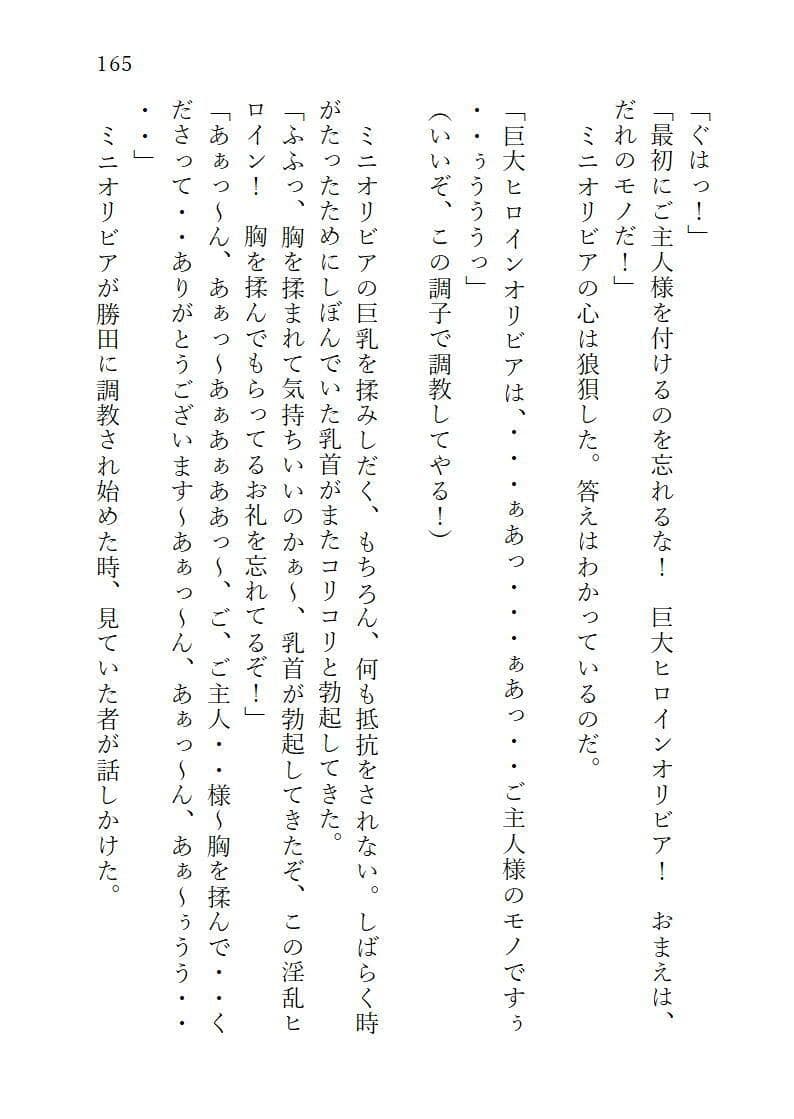 165
「ぐはっ！」
「最初にご主人様を付けるのを忘れるな！　巨大ヒロインオリビア！　おまえは、
だれのモノだ！」
　ミニオリビアの心は狼狽した。答えはわかっているのだ。
「巨大ヒロインオリビアは、・・・ぁあっ・・・ぁあっ・・ご主人様のモノですぅ
・・ぅうううっ」
（いいぞ、この調子で調教してやる！）
　ミニオリビアの巨乳を揉みしだく、もちろん、何も抵抗をされない。しばらく時
がたったためにしぼんでいた乳首がまたコリコリと勃起してきた。
「ふふっ、胸を揉まれて気持ちいいのかぁ～、乳首が勃起してきたぞ、この淫乱ヒ
ロイン！　胸を揉んでもらってるお礼を忘れてるぞ！」
「あぁっ～ん、あぁっ～あぁあぁああっ～、ご、ご主人・・様～胸を揉んで・・く
ださって・・ありがとうございます～あぁっ～ん、あぁっ～ん、あぁ～ぅうう・・
・・」
　ミニオリビアが勝田に調教され始めた時、見ていた者が話しかけた。